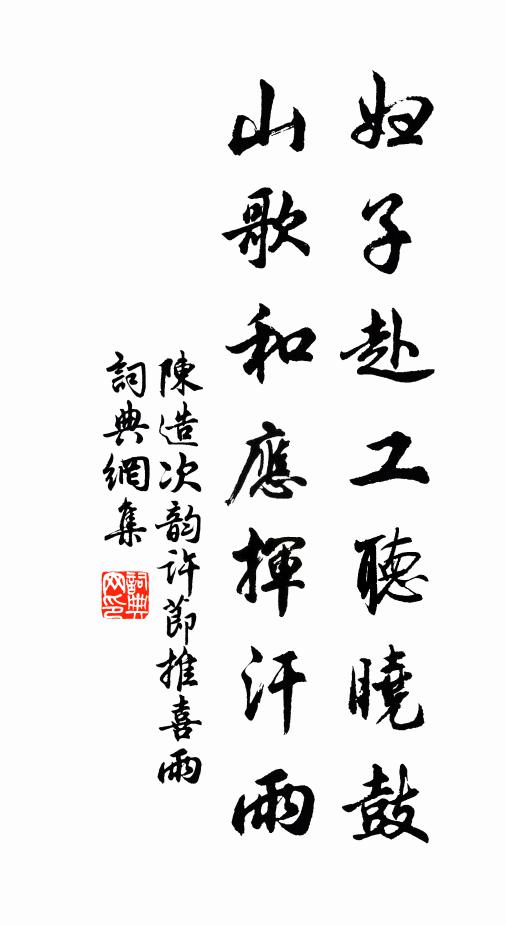 婦子赴工聽曉鼓
山歌和應揮汗雨
陳造次韵許節推喜雨
詞典網集
詞典
网印